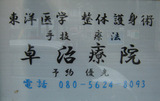 東洋医学 整体護身術
手技 療法
卓治療院
予約優先
電話 080-5624-8093